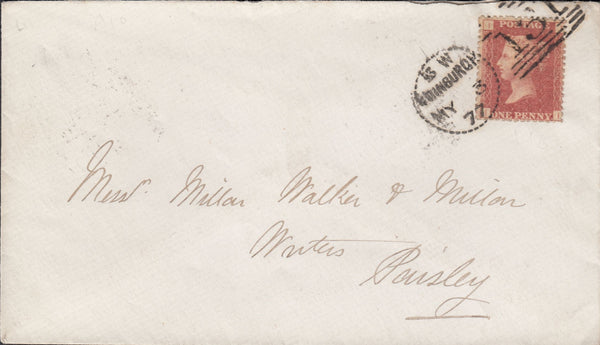 POSTAGE
ONE PENNY
S W
EDINBURGH
MY 3
77
Messrs. Millar Walker & Millar
Writers
Paisley